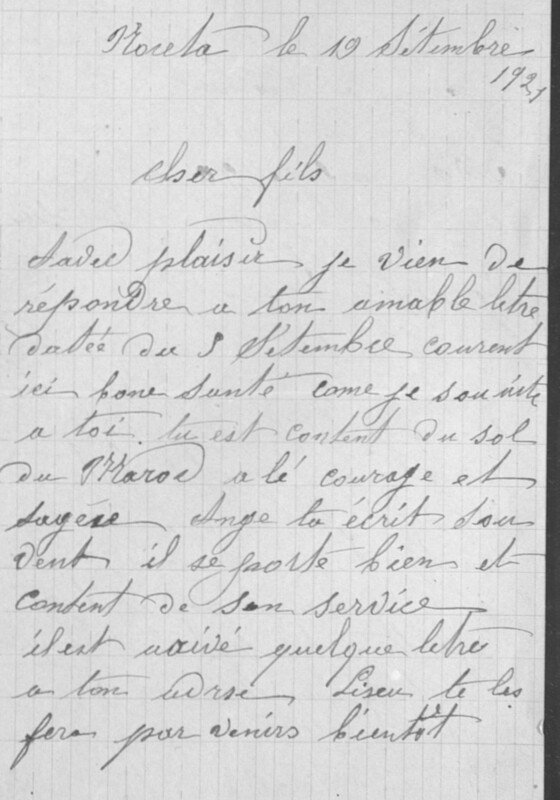 le 19 Sétembre
1921
cher fils
Avec plaisir je vien de
répondre a ton amable letre
datée du 5 Sétembre courent
ici bone santé come je souaite
a toi. tu est content du sol
du Maroc alé courage et
sagése Ange ta écrit sou
vent il se porte bien et
content de son service
il est arivé quelque letre
a ton adrse te les
fera par venirs bientôt